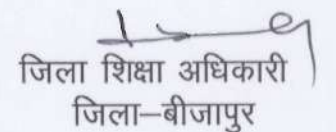 जिला शिक्षा अधिकारी
जिला–बीजापुर